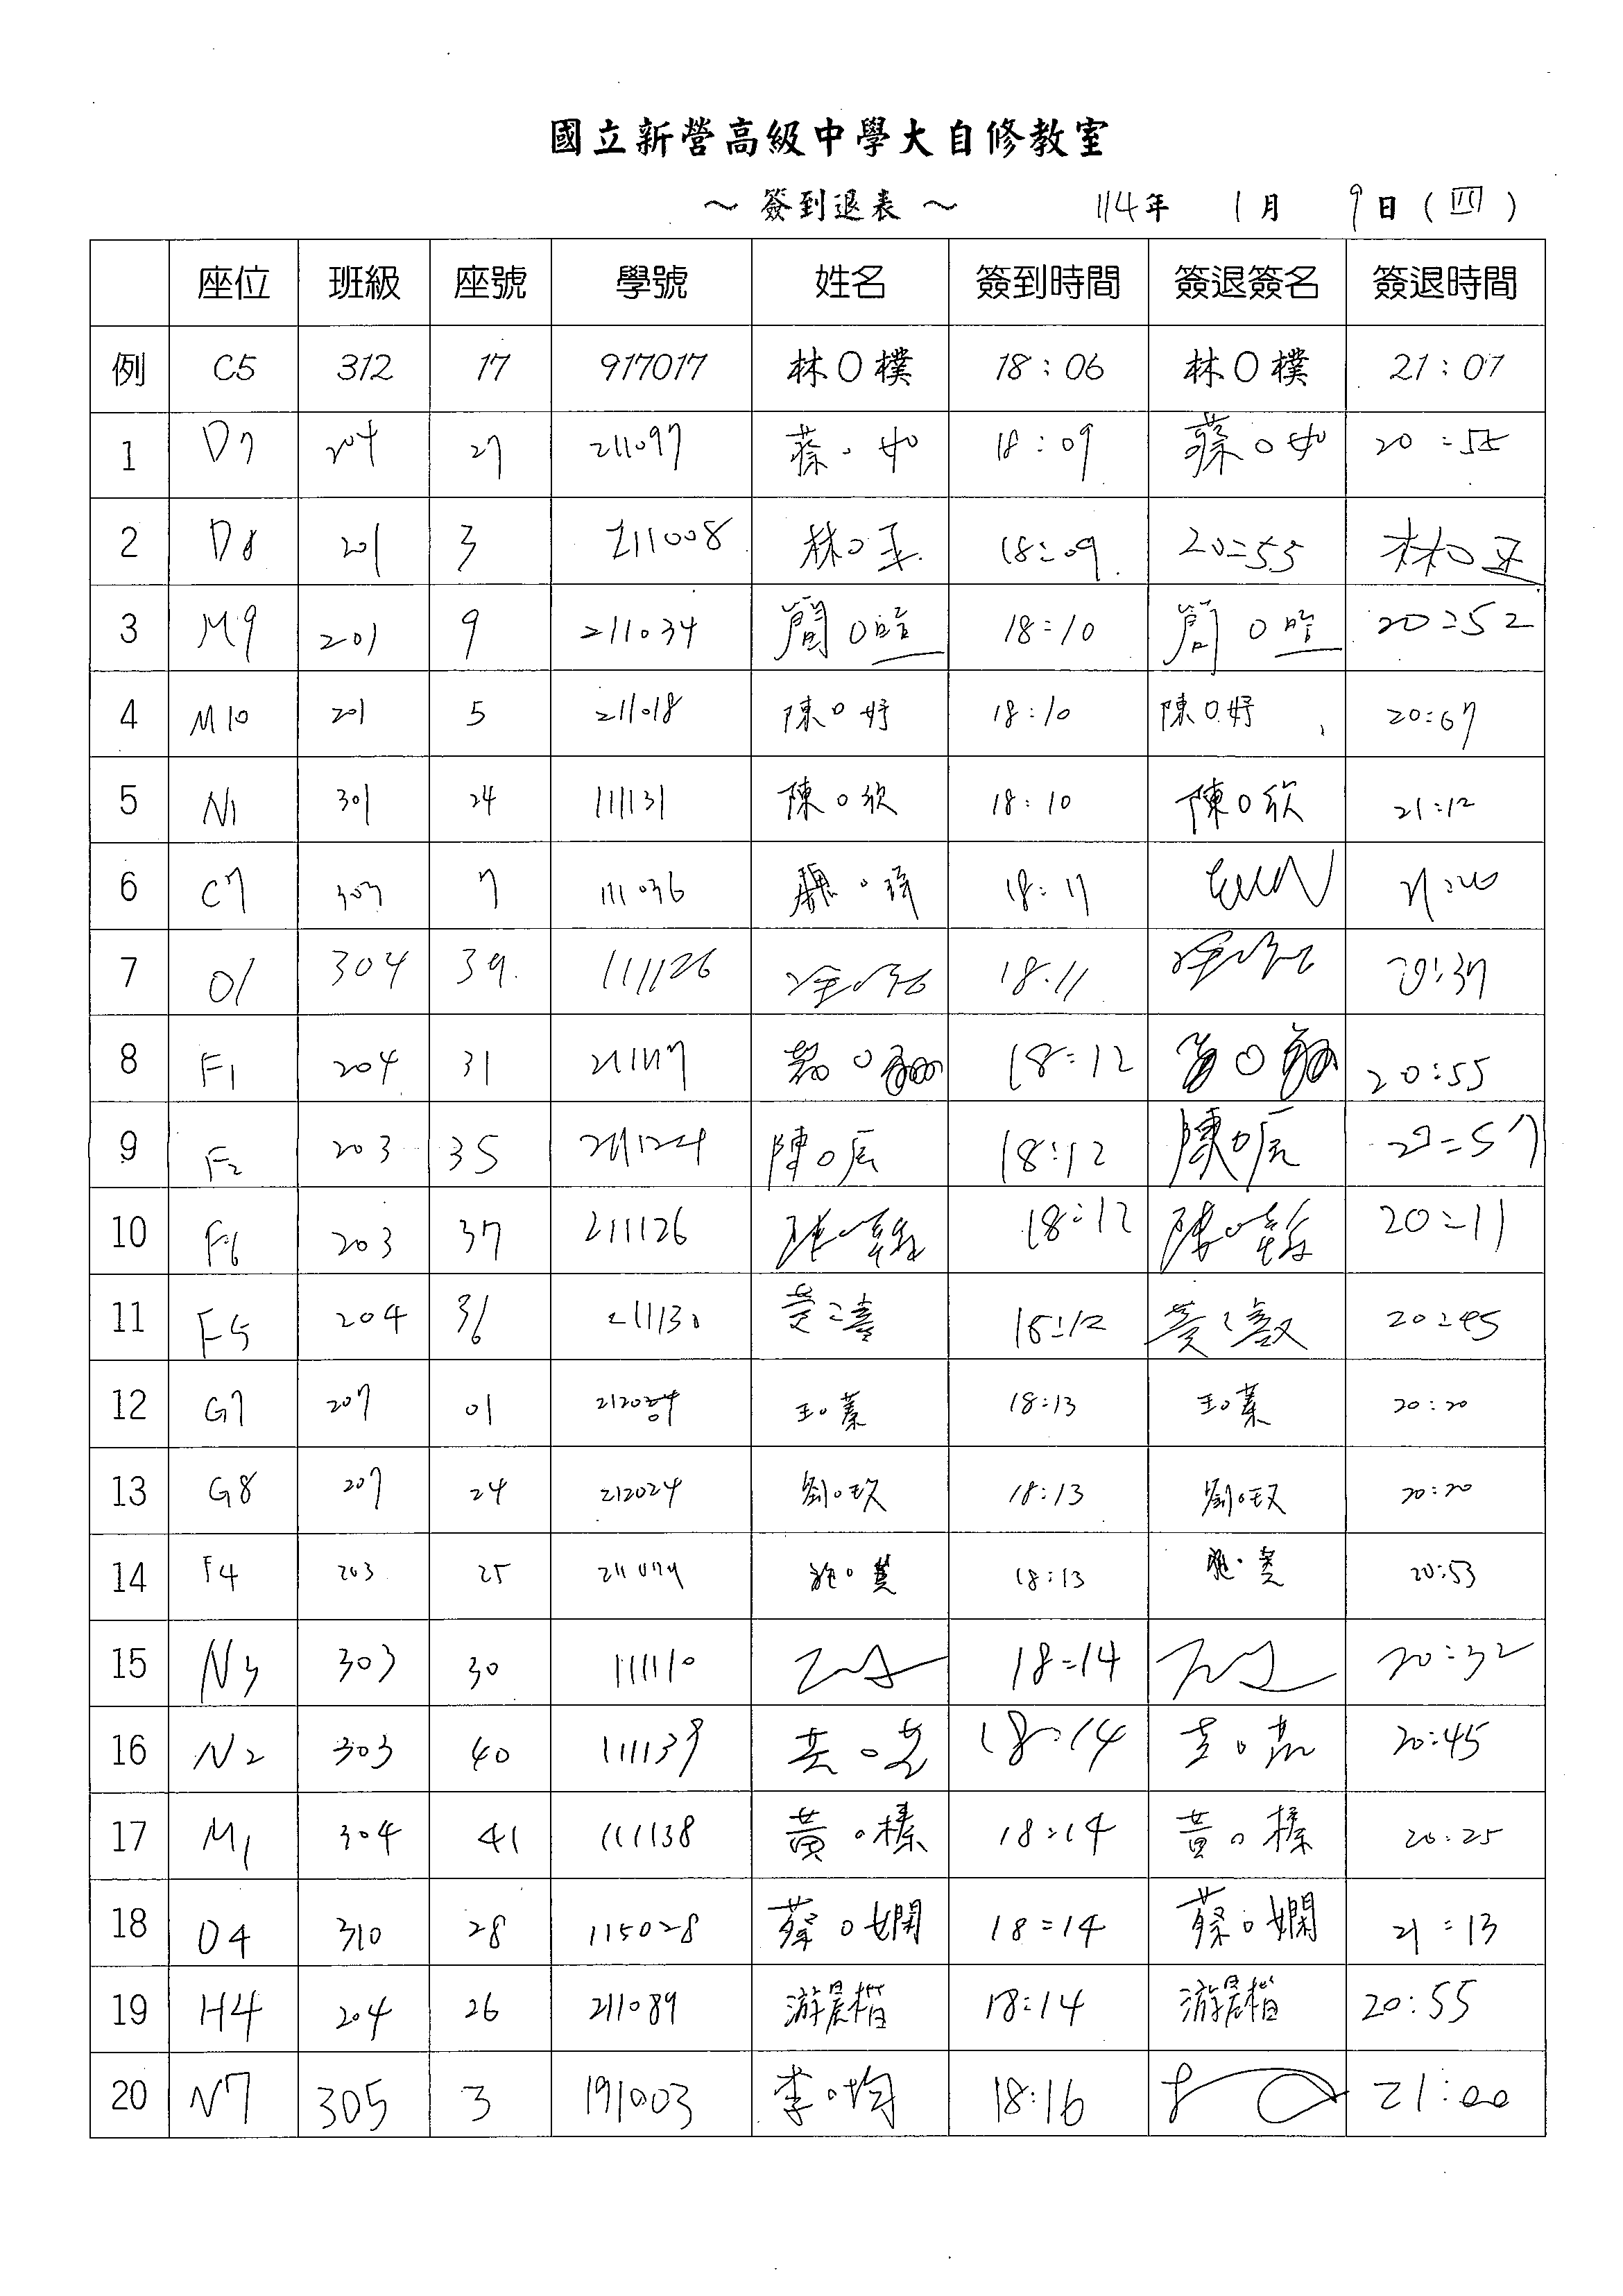 國立新營高級中學大自修教室
～ 簽到退表 ～ 114年 1月 9日 (四)
座位 班級 座號 學號 姓名 簽到時間 簽退簽名 簽退時間
例 C5 312 17 917017 林O樸 18:06 林O樸 21:07
1 D7 204 27 211097 蔡O如 18:09 蔡O如 20:55
2 D8 201 3 211008 林O玉 18:09 20:55 林O玉
3 M9 201 9 211034 簡O暄 18:10 簡O暄 20:52
4 M10 201 5 211018 陳O妤 18:10 陳O妤 20:67
5 N1 301 24 111131 陳O欣 18:10 陳O欣 21:12
6 C7 307 7 111036 魏O琦 18:11
7 O1 304 39 111126 18:11 20:37
8 F1 204 31 211117 18:12 20:55
9 F2 203 35 211124 陳O辰 18:12 陳O辰 20:57
10 F6 203 37 211126 18:12 陳O 20:11
11 F5 204 36 211130 黃 18:12 黃 20:45
12 G7 207 01 王O蓁 18:13 王O蓁 20:20
13 G8 207 24 212024 劉O玟 18:13 劉O玟 20:20
14 F4 203 25 211079 施O萱 18:13 施O萱 20:53
15 N3 303 30 111110 18:14 20:32
16 N2 303 40 111137 黃O 18:14 黃O 20:45
17 M1 304 41 111138 黃O榛 18:14 黃O榛 20:25
18 O4 310 28 115028 蔡O嫻 18:14 蔡O嫻 21:13
19 H4 204 26 211089 游晨楷 18:14 游晨楷 20:55
20 N7 305 3 191003 李O均 18:16 21:00